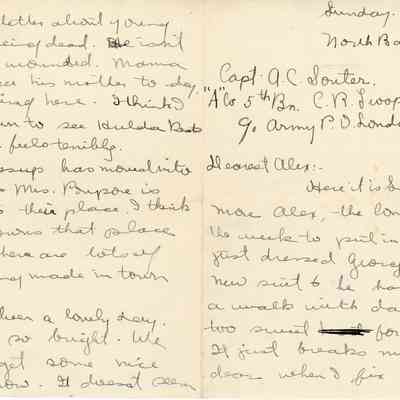 letter about young
being dead. He isn't
wounded. Mama
his mother to day
here. I think I
to see Hulda
feels terribly.
has moved into
Mrs. is
their place. I think
owns that place
there are lots of
made in town
been a lovely day.
so bright. We
get some nice
now. It doesn't seem
Sunday.
North Ba
Capt. A. C. Souter.
"A" Co 5th Bn. C. R. Troop
℅ Army P. O. London
Dearest Alex:-
Here it is
more Alex, the lon
the week to put in
just dressed Georg
new suit & he ha
a walk with da
too sweet for
It just breaks m
dear when I fix